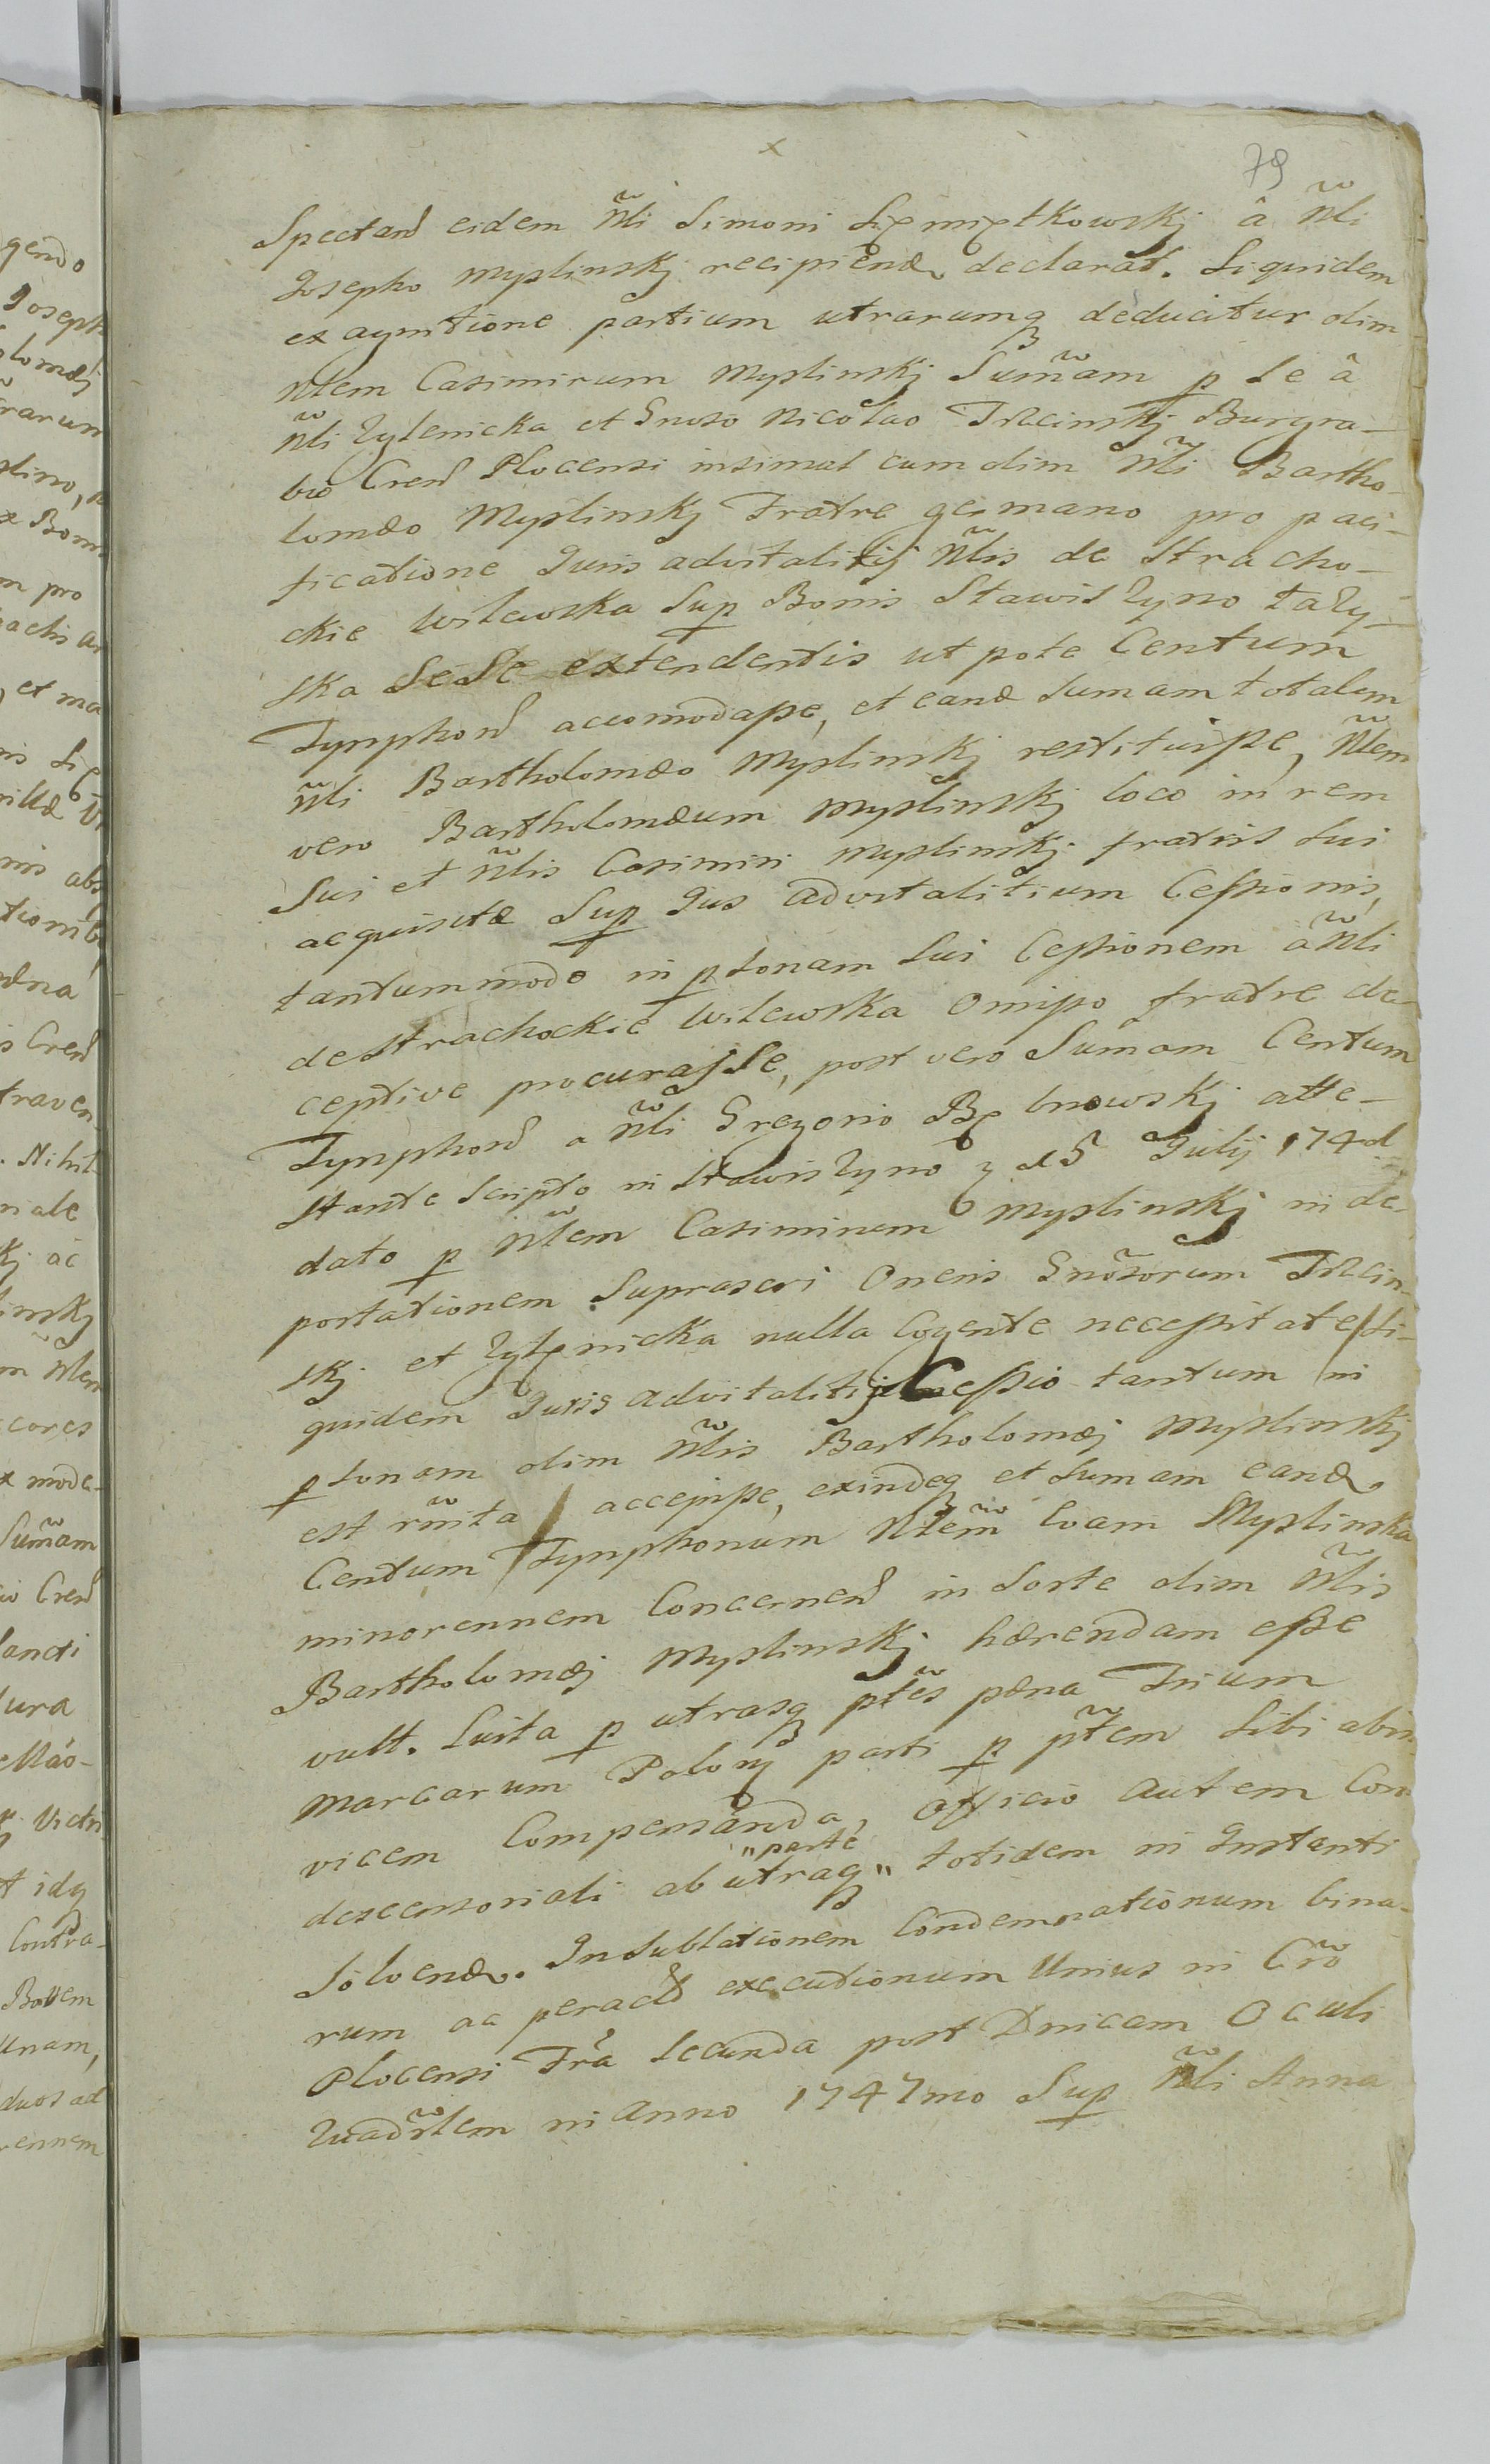 79
Spectand eidem Nli Simoni Siemiętkowskj â Nli
Josepho Myslinskj recipiendã declarat. Siquidem
ex agnitione partium utrarumq deducitur olim
Nlem Casimirum Myslinskj Sumãm p Se â
Nli Zylenicka et Gnoso Nicolao Trzcinskj Burgra-
bio Cren Plocensi insimul cum olim Nli Bartho-
lomæo Myslinskj Fratre germano pro paci-
ficatione Juris advitalitij Nlis de Stracho-
ckie Wilewska Sup Bonis Stawiszyno Łazy-
ska SeSe extendentis ut pote Centum
Tynphon accomodasse, et eand Sumam totalem
Nli Bartholomæo Myslinskj restituisse, Nlem
vero Bartholomæum Myslinskj loco in rem
Sui et Nlis Casimiri Myslinskj fratris Sui
acquisitæ Sup Jus advitalitium Cessionis,
tantummodo in psonam Sui Cessionem â Nli
de Strachockie Wilewska omisso fratre de-
ceptive procurasse, post vero Sumãm Centum
Tynphon a Nli Gregorio Bębnowskj atte-
stante Scripto in Stawiszyno d 5 Julij 174
dato p Nlem Casimirum Myslinskj in de-
portationem Suprascri Oneris Gnosorum Trzcin-
skj et Zylenicka nulla Cogente necessitate / si-
quidem Juris advitalitij Cessio tantum in
psonam olim Nlis Bartholomæj Myslinskj
est rnita / accepisse, exindeq et Sumam eand
Centum Tynphonum Nlem Evam Myslinska
minorennem Concernen in Sorte olim Nlis
Bartholomæj Myslinskj hærendam esse
vult. Luita p utrasq ptes pæna Trium
Marcarum Polon parti p ptem Sibi abin-
vicem Compensanda, Officio autem Con-
descensoriali ab utraq "parte" totidem in Instanti
Solvenda. In Sublationem Condemnationum bina-
rum ac peract executionum Unius in Cro
Plocensi Fra Secunda post Dnicam Oculi
Quadrlem in Anno 1747mo Sup Nli Anna